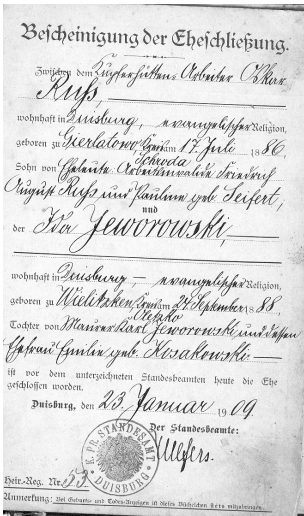 Bescheinigung der Eheschließung.
Zwischen dem Kupferhütten-Arbeiter Oskar
Ruß,
wohnhaft in Duisburg, evangelischer Religion,
geboren zu Gierlatowo Kreis am 17. Juli 1886,
Schroda
Sohn von Eheleute Friedrich
August Ruß und Pauline geb. Seifert,
und
der Ida Jeworowski,
wohnhaft in Duisburg, – evangelischer Religion,
geboren zu Wielitzken Kreis am 24. September 1888.
Oletzko
Tochter von Maurer Karl Jeworowski und dessen
Ehefrau Emilie geb. Kosakowski –
ist vor dem unterzeichneten Standesbeamten heute die Ehe
geschlossen worden.
Duisburg, den 23. Januar 1909.
Der Standesbeamte:
K. PR. STANDESAMT
DUISBURG
Heir.-Reg. Nr. 53.
Anmerkung: Bei Geburts- und Todes-Anzeigen ist dieses Büchelchen stets mitzubringen.